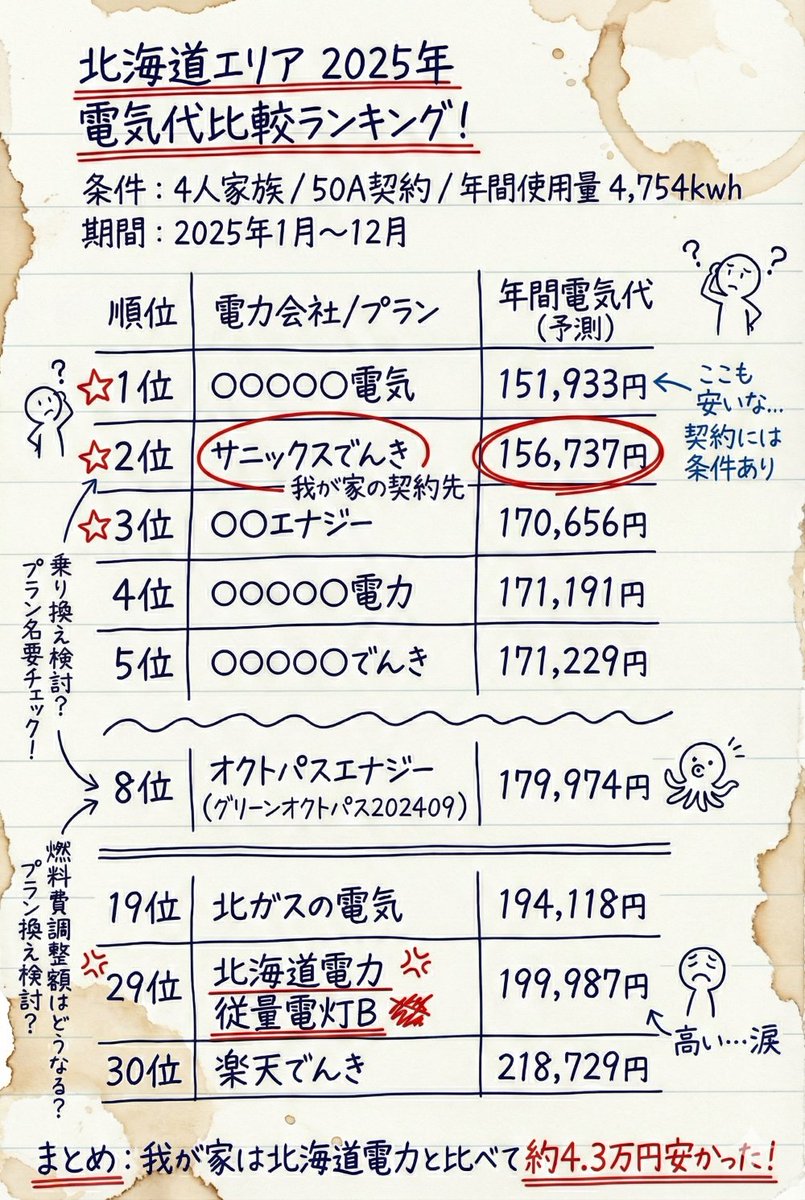 北海道エリア 2025年
電気代比較ランキング！
条件：4人家族/50A契約/年間使用量 4,754kwh
期間：2025年1月～12月
順位 電力会社/プラン 年間電気代
(予測)
☆1位 〇〇〇〇〇電気 151,933円
ここも
安いな…
契約には
条件あり
☆2位 サニックスでんき 156,737円
我が家の契約先
☆3位 〇〇エナジー 170,656円
4位 〇〇〇〇〇電力 171,191円
5位 〇〇〇〇〇でんき 171,229円
乗り換え検討？
プラン名要チェック！
8位 オクトパスエナジー 179,974円
(グリーンオクトパス202409)
燃料費調整額はどうなる？
プラン換え検討？
19位 北ガスの電気 194,118円
29位 北海道電力 199,987円
従量電灯B
高い…涙
30位 楽天でんき 218,729円
まとめ：我が家は北海道電力と比べて約4.3万円安かった！
？
？
？